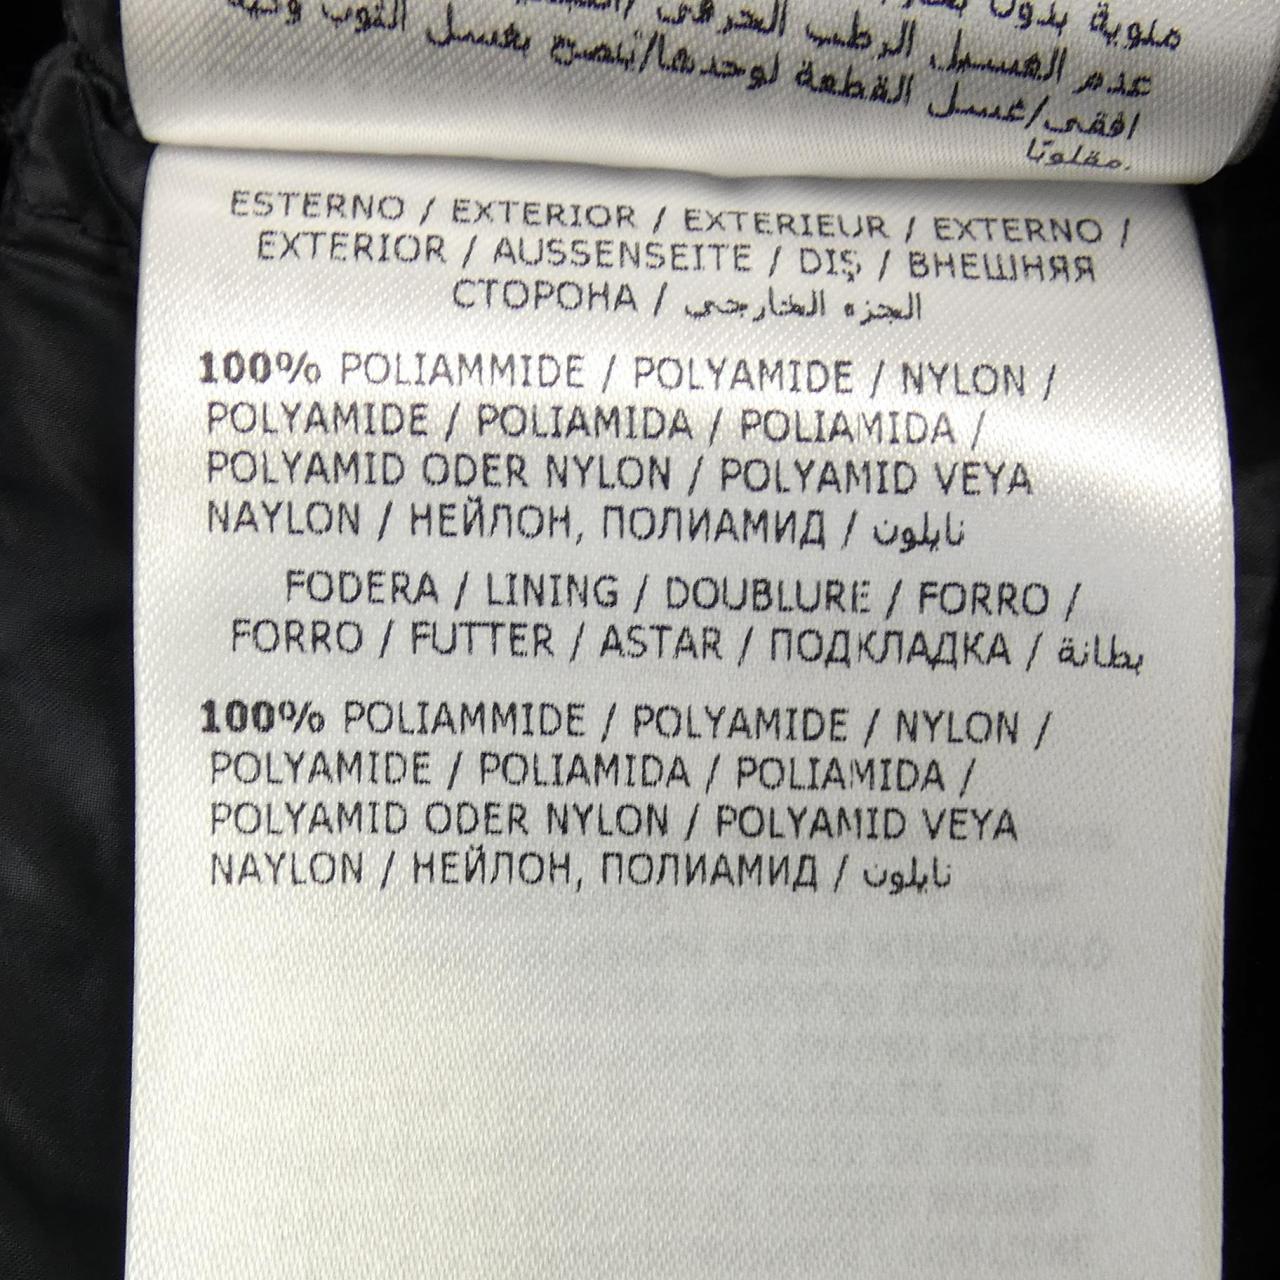 منوية بدون
عدم الغسيل الرطب الحرفي
افقي/غسل القطعة لوحدها/ينصح بغسل الثوب
مقلوبًا.
ESTERNO / EXTERIOR / EXTERIEUR / EXTERNO /
EXTERIOR / AUSSENSEITE / DIŞ / ВНЕШНЯЯ
СТОРОНА / الجزه الخارجي
100% POLIAMMIDE / POLYAMIDE / NYLON /
POLYAMIDE / POLIAMIDA / POLIAMIDA /
POLYAMID ODER NYLON / POLYAMID VEYA
NAYLON / НЕЙЛОН, ПОЛИАМИД / نايلون
FODERA / LINING / DOUBLURE / FORRO /
FORRO / FUTTER / ASTAR / ПОДКЛАДКА / بطانة
100% POLIAMMIDE / POLYAMIDE / NYLON /
POLYAMIDE / POLIAMIDA / POLIAMIDA /
POLYAMID ODER NYLON / POLYAMID VEYA
NAYLON / НЕЙЛОН, ПОЛИАМИД / نايلون